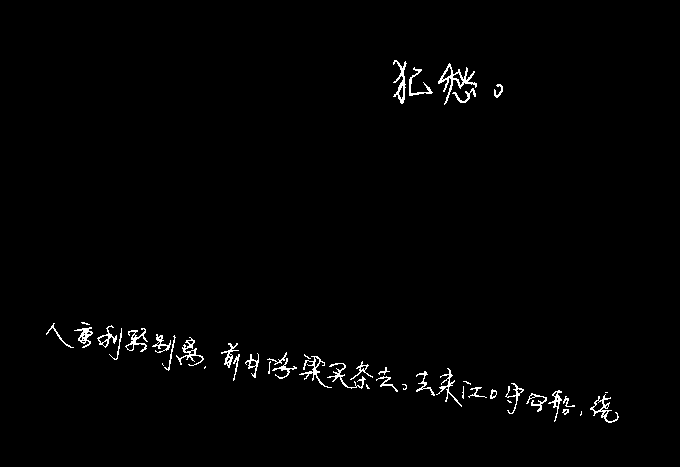 犯愁。
人重利轻别离,前月浮梁买茶去。去来江口守空船,绕